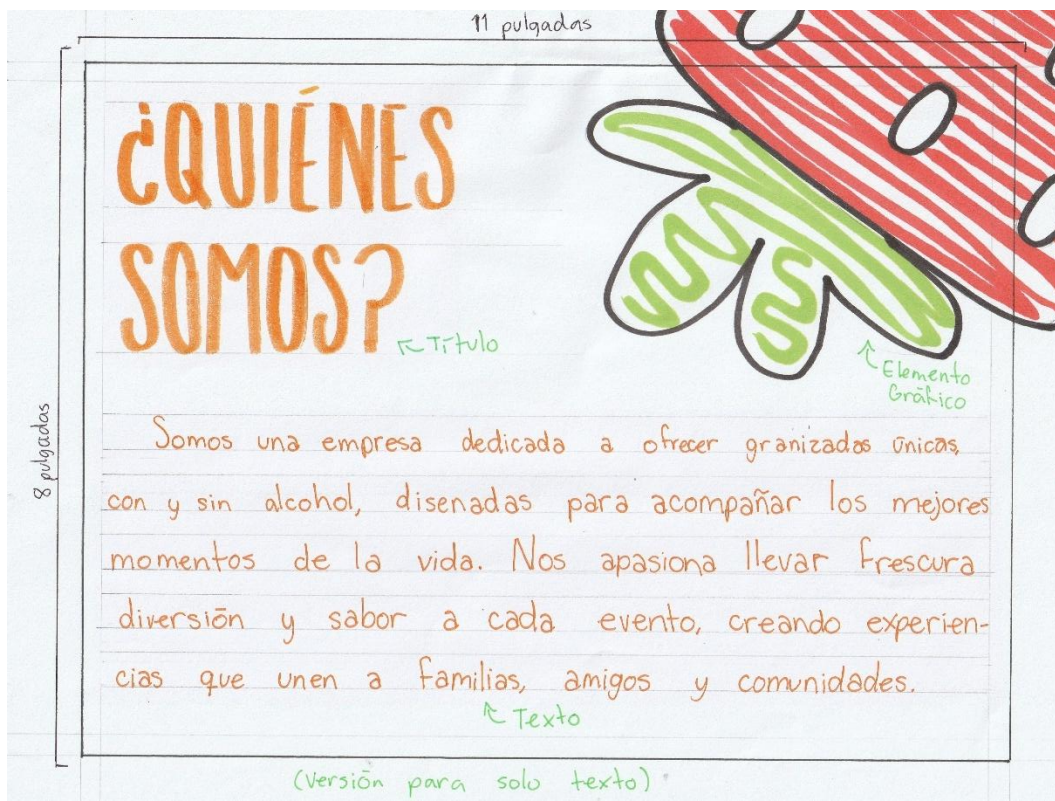 11 pulgadas
¿QUIÉNES
SOMOS?
Título
Elemento
Gráfico
8 pulgadas
Somos una empresa dedicada a ofrecer granizadas únicas,
con y sin alcohol, disenadas para acompañar los mejores
momentos de la vida. Nos apasiona llevar frescura
diversión y sabor a cada evento, creando experien-
cias que unen a familias, amigos y comunidades.
Texto
(Versión para solo texto)